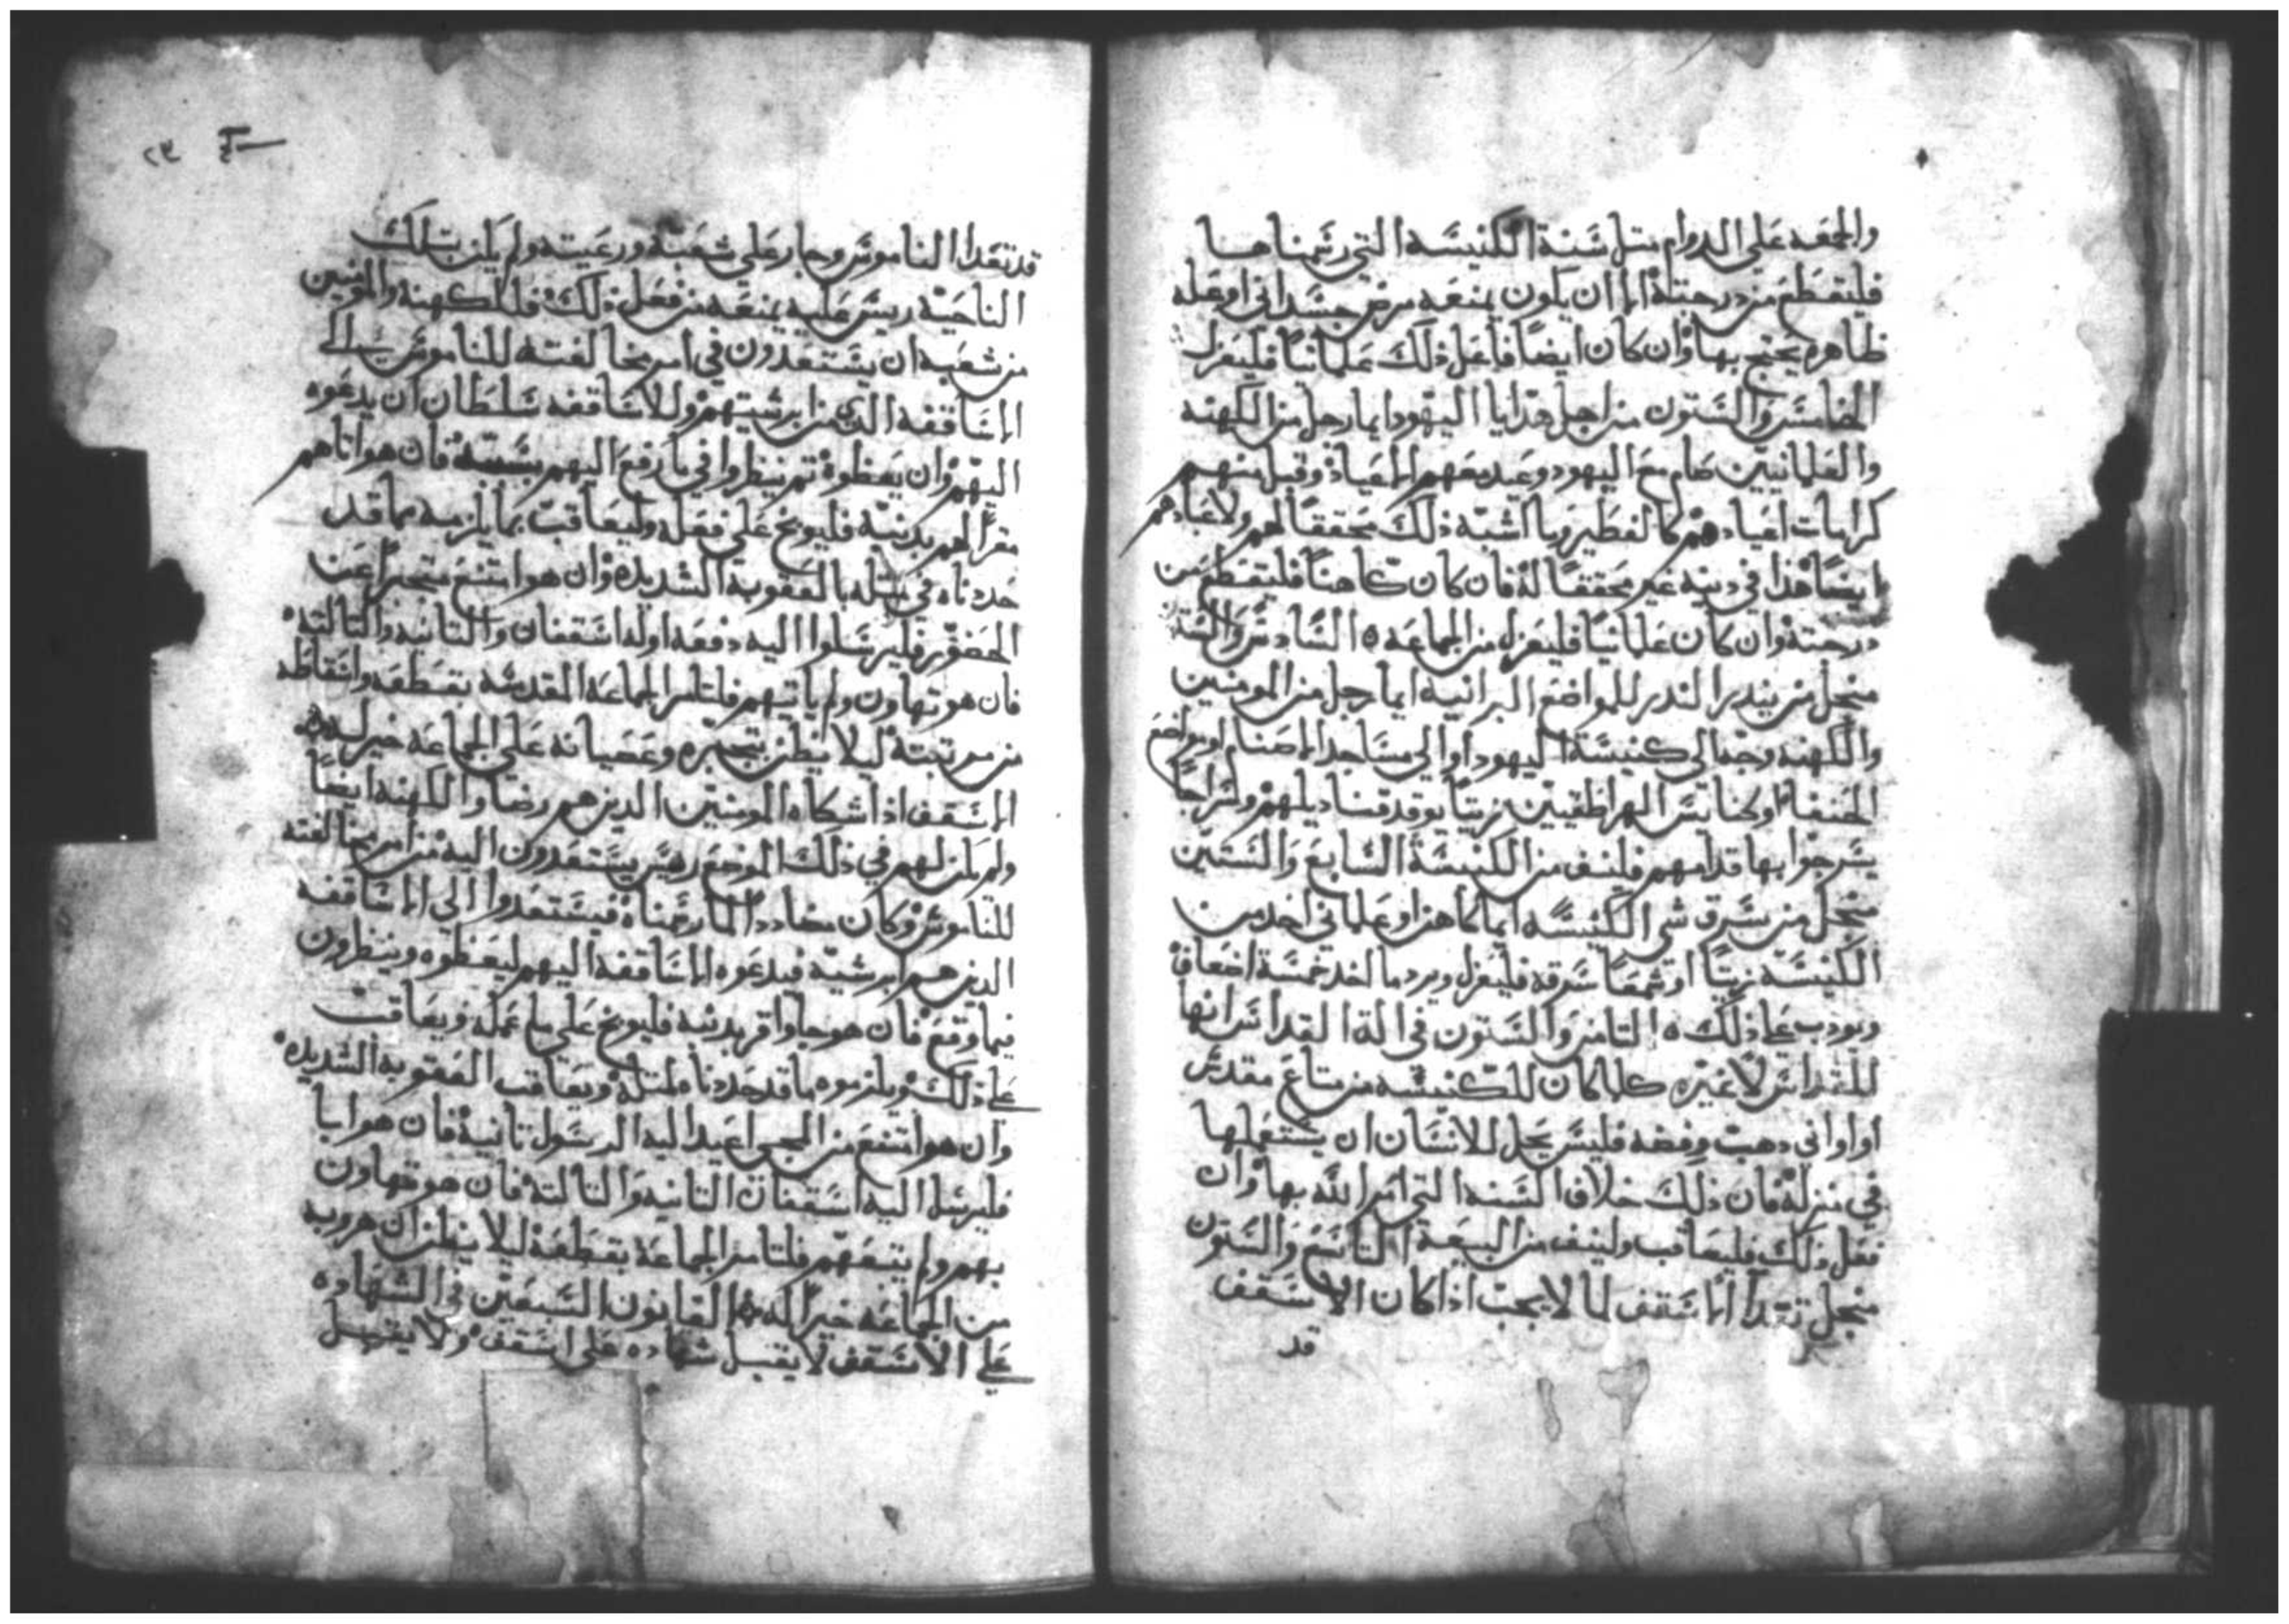 والجمعه على الدوام مثل سنة الكنيسه التي رسمناها
فليقطع من درجته الا ان يكون يمنعه مرض جسداني او عله
ظاهره يحتج بها وان كان ايضا فاعل ذلك علمانيا فليعزل
الخامس والستون من اجل هدايا اليهود ايما رجل من الكهنه
والعلمانيين صام مع اليهود وعيد معهم الاعياد وقبل منهم
كرامات اعيادهم كالفطير وما اشبه ذلك محققا لهم ولاعيادهم
ايضا هذا في دينه غير محققا له فان كان كاهنا فليقطع من
درجته وان كان علمانيا فليعزل من الجماعه ٥ السادس والستون
منجل من يندر الندر للمواضع البرانيه ايما رجل من المومنين
والكهنه وجه الي كنيسة اليهود او الي مساجد الاصنام او مواضع
الحنفا او لخنايس الهراطقيين زيتا يوقد قناديلهم ولسراجا
يسرجوا بها قدامهم فلينف من الكنيسة السابع والستين
منجل من سرق شي الكنيسه ايما كاهن او علماني اخد من
الكنيسه زيتا او شمعا سرقه فليعزل ويرد ما اخد خمسة اضعاف
ويودب على ذلك ٥ التامن والستون في الة القداس انها
للقداس لا غيره كلما كان للكنيسه من متاع مقدس
او اواني دهب وفضه فليس يحل للانسان ان يستعملها
في منزله فان ذلك خلاف السنه التي امر الله بها وان
فعل ذلك فليعاقب ولينف من البيعة التاسع والستون
منجل تعدا الاسقف لما لا يجب اذا كان الاسقف
قد
٢٣
قد تعدا الناموس وجار على شعبه ورعيته ولم يكن بتلك
الناحيه ريس عليه يمنعه من فعل ذلك فللكهنه والمومنين
من شعبه ان يستعدون في امر مخالفته للناموس الى
الاساقفه الذي من ابرشيتهم وللاساقفه سلطان ان يدعوه
اليهم وان يعظوه تم ينظروا في ما رفع اليهم بسببه فان هو اتاهم
مقرا لهم بدنبه فليوبخ على فعله وليعاقب بما يلزمه مما قد
حددناه في متله بالعقوبة الشديده وان هو امتنع متجبرا عن
الحضور فليرسلوا اليه دفعه اوله اسقفان والتانيه والتالته
فان هو تهاون ولم ياتيهم فلتامر الجماعه المقدسه بقطعه واسقاطه
من مرتبته ليلا يظن تجبره وعصيانه على الجماعه خير له
الاسقف اذا شكاه المومنين الدين هم رضا والكهنه ايضا
ولم يكن لهم في ذلك الموضع ريس يستعدون اليه من امر مخالفته
للناموس وكان مضاددا لما رسمناه فيستعدوا الي الاساقفه
الدين هم ابرشيه فيدعوه الاساقفه اليهم ليعظوه وينظرون
فيما وقع فان هو جا واقر بدنبه فليوبخ على ما عمله ويعاقب
على ذلك ويلزموه ما قد حددناه لمتله ويعاقب العقوبه الشديده
وان هو امتنع من المجي اعيد اليه الرسول تانيه فان هو ابا
فليرسل اليه اسقفان التانيه والتالته فان هو تهاون
بهم ولم يتبعهم فلتامر الجماعه بقطعه ليلا يظن ان هروبه
من الجماعه خيرا له القانون السبعين في الشهاده
على الاسقف لا يقبل شهاده على اسقف ولا يقبل